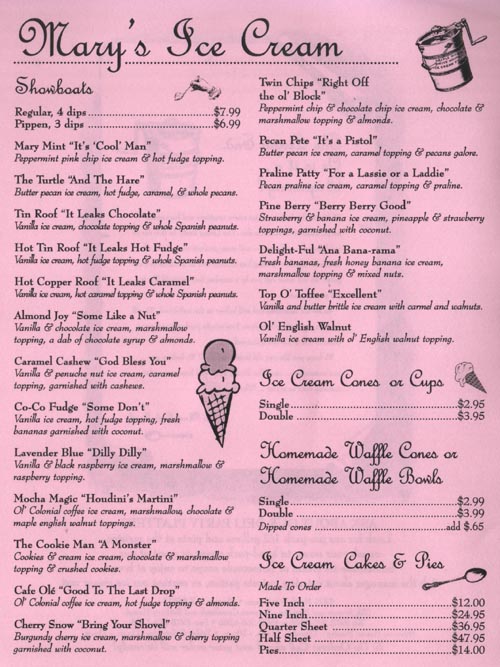 Mary's Ice Cream
Showboats
Regular, 4 dips $7.99
Pippen, 3 dips $6.99
Mary Mint "It's 'Cool' Man"
Peppermint pink chip ice cream & hot fudge topping.
The Turtle "And The Hare"
Butter pecan ice cream, hot fudge, caramel, & whole pecans.
Tin Roof "It Leaks Chocolate"
Vanilla ice cream, chocolate topping & whole Spanish peanuts.
Hot Tin Roof "It Leaks Hot Fudge"
Vanilla ice cream, hot fudge topping & whole Spanish peanuts.
Hot Copper Roof "It Leaks Caramel"
Vanilla ice cream, hot caramel topping & whole Spanish peanuts.
Almond Joy "Some Like a Nut"
Vanilla & chocolate ice cream, marshmallow
topping, a dab of chocolate syrup & almonds.
Caramel Cashew "God Bless You"
Vanilla & penuche nut ice cream, caramel
topping, garnished with cashews.
Co-Co Fudge "Some Don't"
Vanilla ice cream, hot fudge topping, fresh
bananas garnished with coconut.
Lavender Blue "Dilly Dilly"
Vanilla & black raspberry ice cream, marshmallow &
raspberry topping.
Mocha Magic "Houdini's Martini"
Ol' Colonial coffee ice cream, marshmallow, chocolate &
maple english walnut toppings.
The Cookie Man "A Monster"
Cookies & cream ice cream, chocolate & marshmallow
topping & crushed cookies.
Cafe Olé "Good To The Last Drop"
Ol' Colonial coffee ice cream, hot fudge topping & almonds.
Cherry Snow "Bring Your Shovel"
Burgundy cherry ice cream, marshmallow & cherry topping
garnished with coconut.
Twin Chips "Right Off
the ol' Block"
Peppermint chip & chocolate chip ice cream, chocolate &
marshmallow topping & almonds.
Pecan Pete "It's a Pistol"
Butter pecan ice cream, caramel topping & pecans galore.
Praline Patty "For a Lassie or a Laddie"
Pecan praline ice cream, caramel topping & praline.
Pine Berry "Berry Berry Good"
Strawberry & banana ice cream, pineapple & strawberry
toppings, garnished with coconut.
Delight-Ful "Ana Bana-rama"
Fresh bananas, fresh honey banana ice cream,
marshmallow topping & mixed nuts.
Top O' Toffee "Excellent"
Vanilla and butter brittle ice cream with carmel and walnuts.
Ol' English Walnut
Vanilla ice cream with ol' English walnut topping.
Ice Cream Cones or Cups
Single $2.95
Double $3.95
Homemade Waffle Cones or
Homemade Waffle Bowls
Single $2.99
Double $3.99
Dipped cones add $.65
Ice Cream Cakes & Pies
Made To Order
Five Inch $12.00
Nine Inch $24.95
Quarter Sheet $36.95
Half Sheet $47.95
Pies $14.00